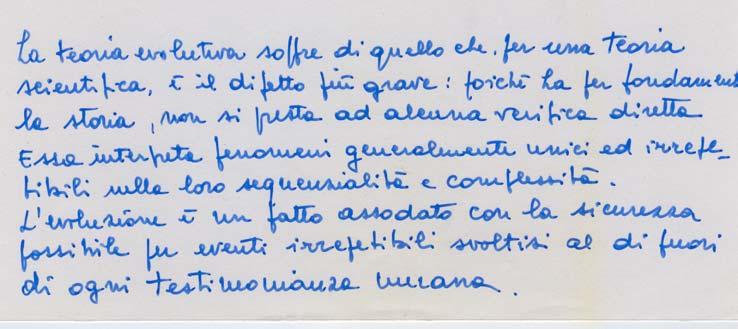 La teoria evolutiva soffre di quello che, per una teoria
scientifica, è il difetto più grave: poichè ha per fondament
la storia, non si presta ad alcuna verifica diretta
Essa interpreta fenomeni generalmente unici ed irrepe-
tibili nella loro sequenzialità e complessità.
L'evoluzione è un fatto assodato con la sicurezza
possibile per eventi irrepetibili svoltisi al di fuori
di ogni testimonianza umana.